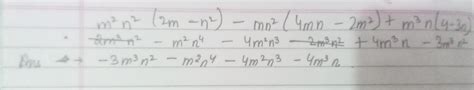 m²n² (2m - n²) - mn² (4mn - 2m²) + m³n (4-3n)
2m³n² - m²n⁴ - 4m²n³ - 2m³n² + 4m³n - 3m³n²
Ans → -3m³n² - m²n⁴ - 4m²n³ - 4m³n